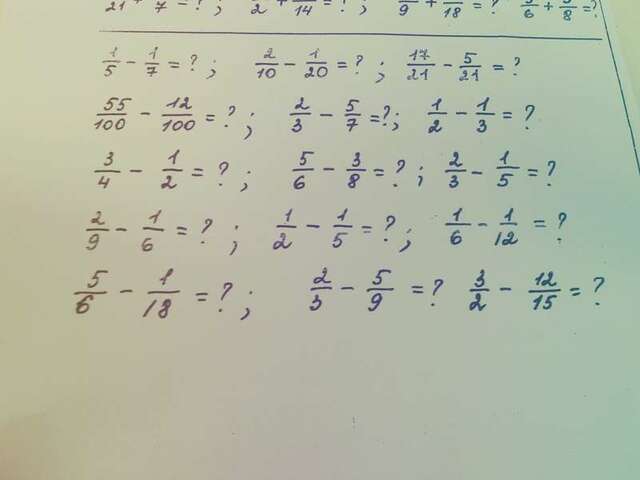 1/5 - 1/7 = ? ; 2/10 - 1/20 = ? ; 17/21 - 5/21 = ?
55/100 - 12/100 = ? ; 2/3 - 5/7 = ? ; 1/2 - 1/3 = ?
3/4 - 1/2 = ? ; 5/6 - 3/8 = ? ; 2/3 - 1/5 = ?
2/9 - 1/6 = ? ; 1/2 - 1/5 = ? ; 1/6 - 1/12 = ?
5/6 - 1/18 = ? ; 2/3 - 5/9 = ? 3/2 - 12/15 = ?